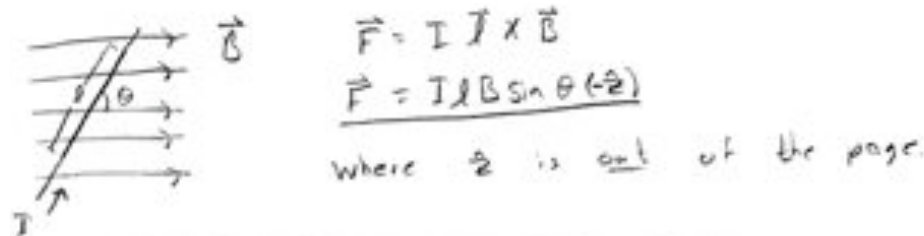 B⃗
F⃗ = I l⃗ × B⃗
l θ
F⃗ = I l B sin θ (-ẑ)
where ẑ is out of the page.
I